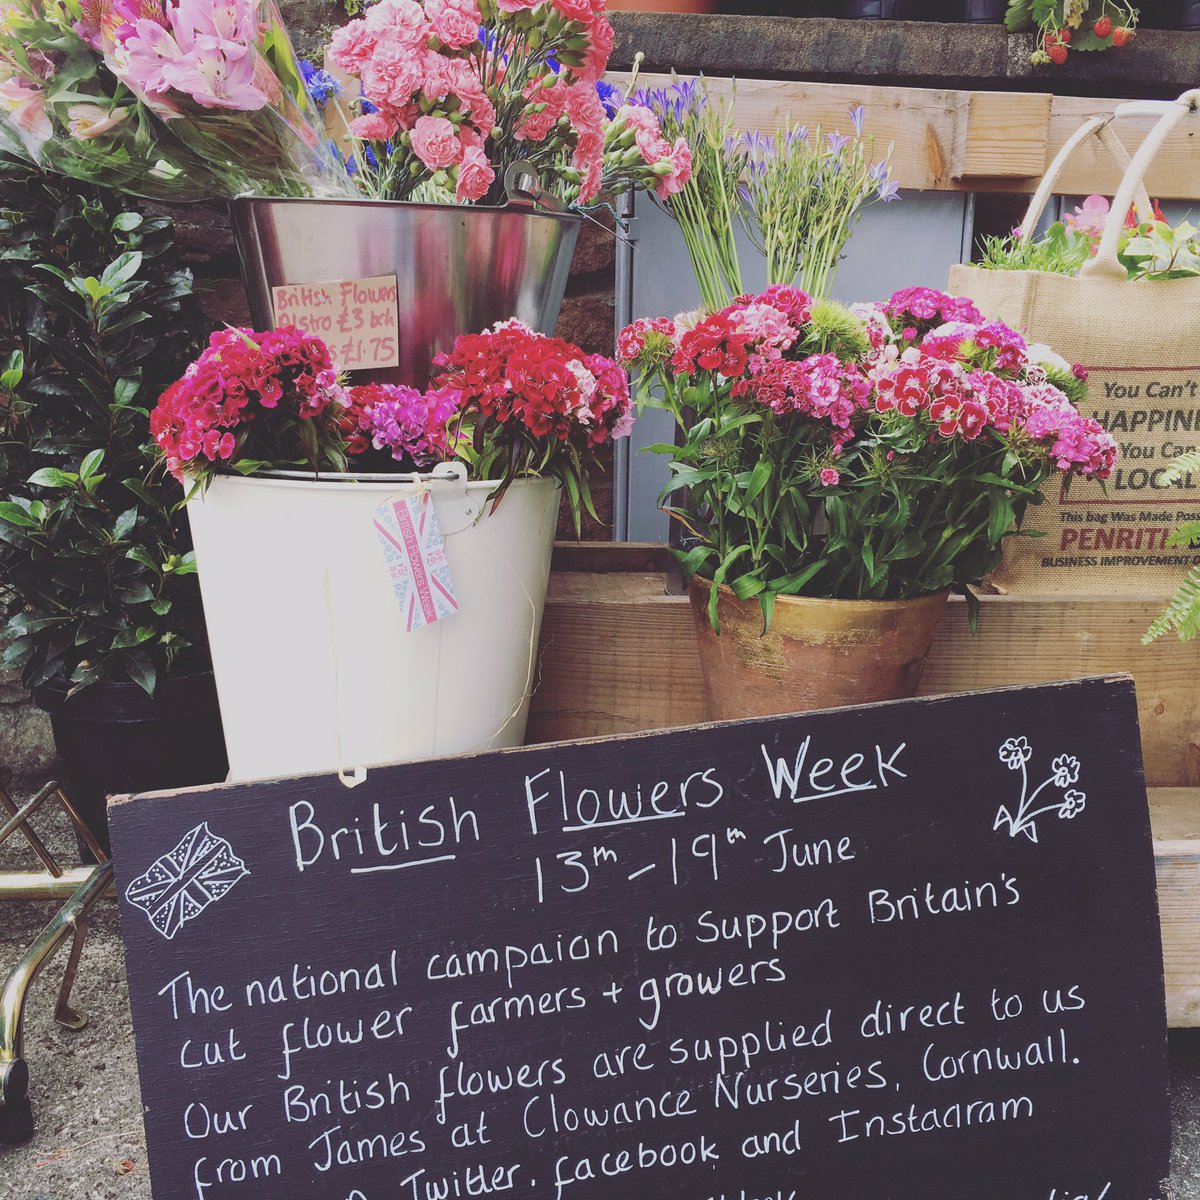 British Flowers
Alstro £3 bch
£1.75
British Flowers Week
You Can't
HAPPIN
You Can
LOCAL
This bag Was Made Pos
PENRITH
BUSINESS IMPROVEMENT
British Flowers Week
13th - 19th June
The national campaion to support Britain's
cut flower farmers + growers
Our British flowers are supplied direct to us
from James at Clowance Nurseries, Cornwall.
Twitter, facebook and Instagram